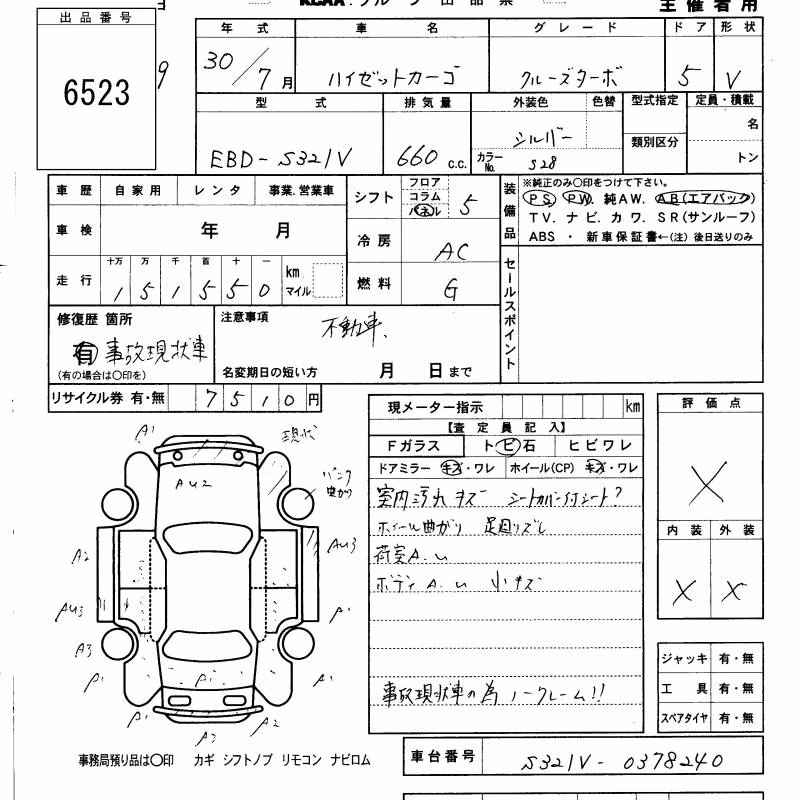 出品番号
6523
主催者用
年式 車名 グレード ドア 形状
30/7月 ハイゼットカーゴ クルーズターボ 5 V
型式 排気量 外装色 色替 型式指定 定員・積載
類別区分
名
トン
EBD-S321V 660 c.c. シルバー
カラーNo. S28
車歴 自家用 レンタ 事業.営業車
車検 年 月
走行 十万 万 千 百 十 一 km マイル
1 5 1 5 5 0
シフト フロア コラム パネル 5
冷房 AC
燃料 G
装備品
※純正のみ〇印をつけて下さい。
PS. PW. 純AW. AB(エアバック)
TV. ナビ. カワ. SR(サンルーフ)
ABS ・ 新車保証書←(注) 後日送りのみ
セールスポイント
修復歴 箇所
有 事故現状車
(有の場合は〇印を)
注意事項
不動車.
名変期日の短い方 月 日まで
リサイクル券 有・無 7510円
現メーター指示 km
【査定員記入】
Fガラス ト ビ 石 ヒビワレ
ドアミラー キズ・ワレ ホイール(CP) キズ・ワレ
室内汚れ キズ シートカバー付シート?
ホイール曲がり 足廻りズレ
荷室A.U
ボディA.U 小キズ
事故現状車の為 ノークレーム!!
評価点
X
内装 外装
X X
ジャッキ 有・無
工具 有・無
スペアタイヤ 有・無
A1
現状
AU2
パンク
曲がり
A2
AU3
AU3
A1
A3
A1
A1
A1
A1
A2
A3
事務局預り品は〇印 カギ シフトノブ リモコン ナビロム
車台番号 S321V-0378240